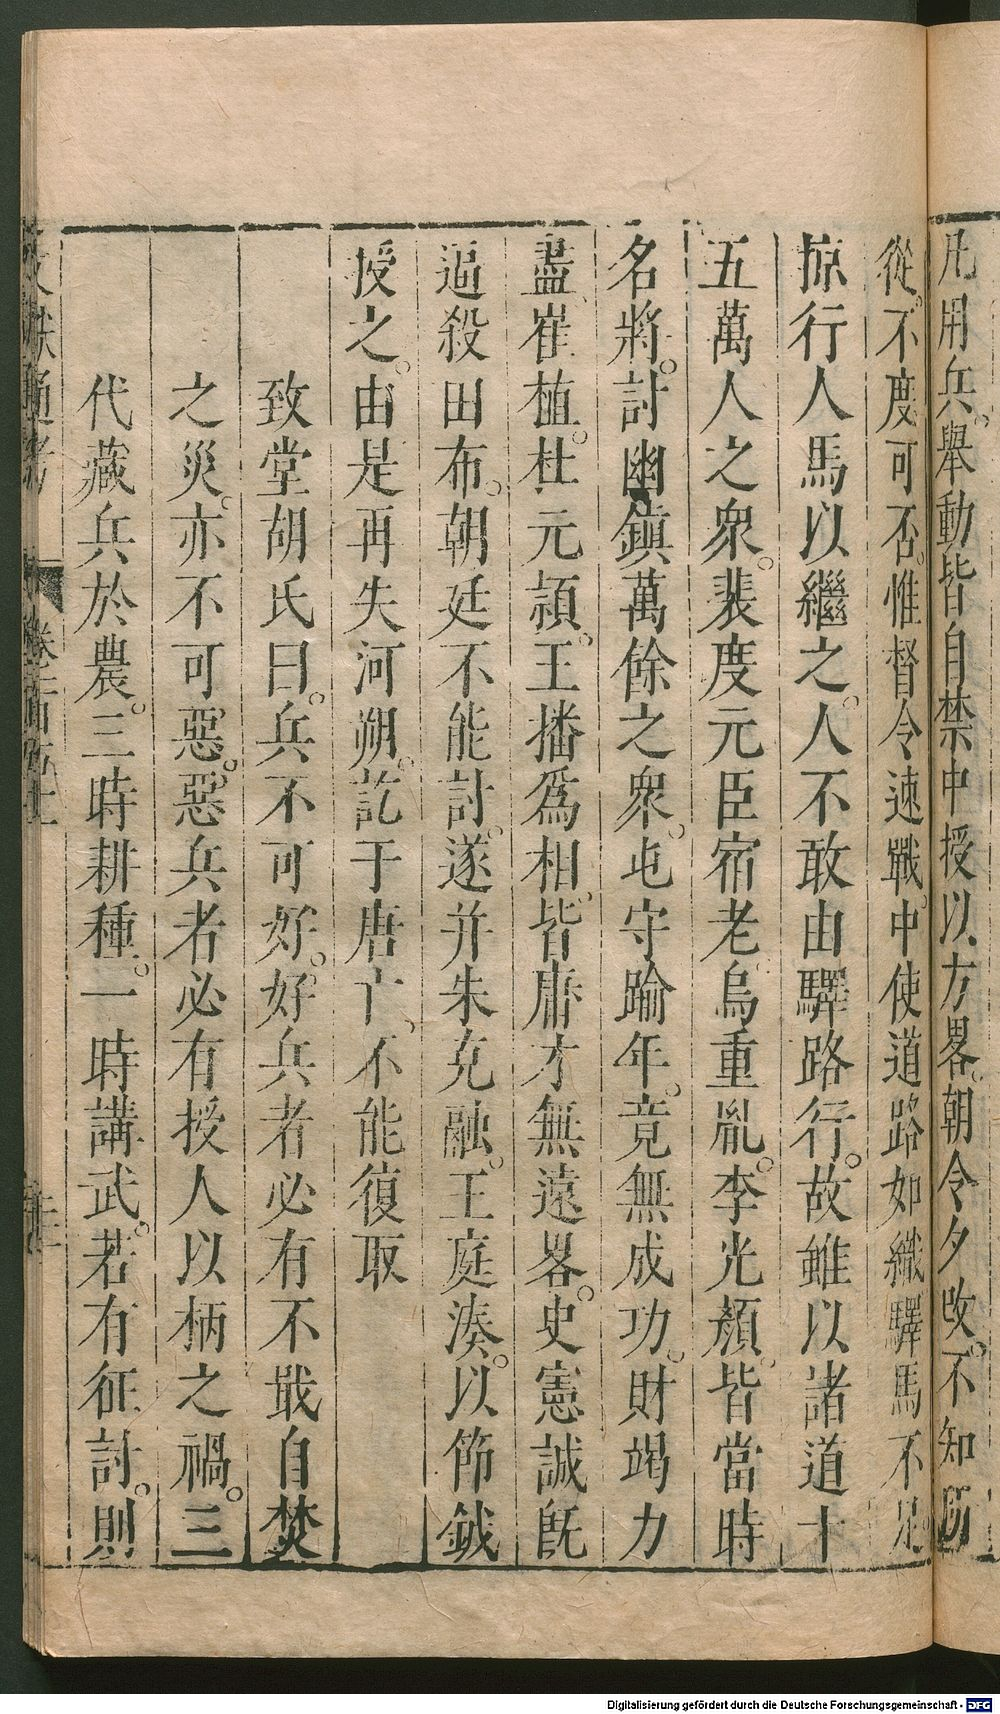 凡用兵。舉動皆自禁中授以方畧。朝令夕改。不知所
從。不度可否。惟督令速戰。中使道路如織。驛馬不足。
掠行人馬以繼之。人不敢由驛路行。故雖以諸道十
五萬人之衆。裴度元臣宿老。烏重胤。李光顏。皆當時
名將。討幽鎮萬餘之衆。屯守踰年。竟無成功。財竭力
盡。崔植。杜元頴。王播爲相。皆庸才無遠畧。史憲誠旣
逼殺田布。朝廷不能討。遂并朱克融。王庭湊。以節鉞
授之。由是再失河朔。訖于唐亡。不能復取
致堂胡氏曰。兵不可好。好兵者必有不戢自焚
之災。亦不可惡。惡兵者必有授人以柄之禍。三
代藏兵於農。三時耕種。一時講武。若有征討。則
文獻通考
卷一百五十一
Digitalisierung gefördert durch die Deutsche Forschungsgemeinschaft - DFG